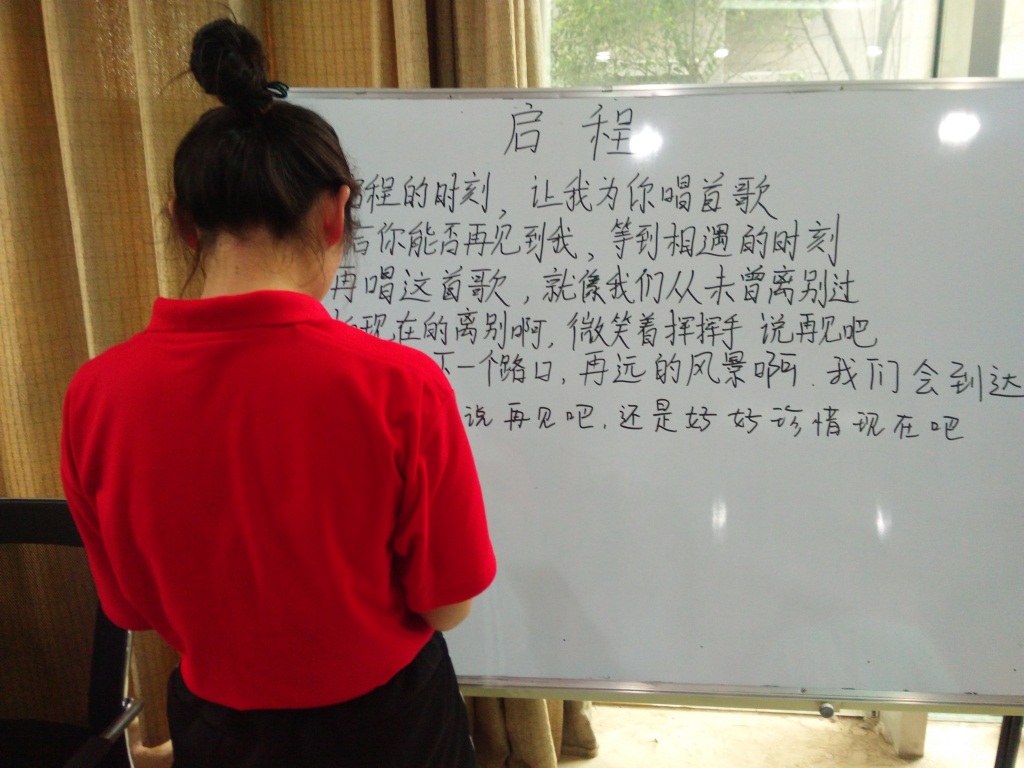 启程
程的时刻，让我为你唱首歌
后你能否再见到我，等到相遇的时刻
再唱这首歌，就像我们从未曾离别过
现在的离别啊，微笑着挥挥手 说再见吧
下一个路口，再远的风景啊．我们会到达
说再见吧．还是好好珍惜现在吧